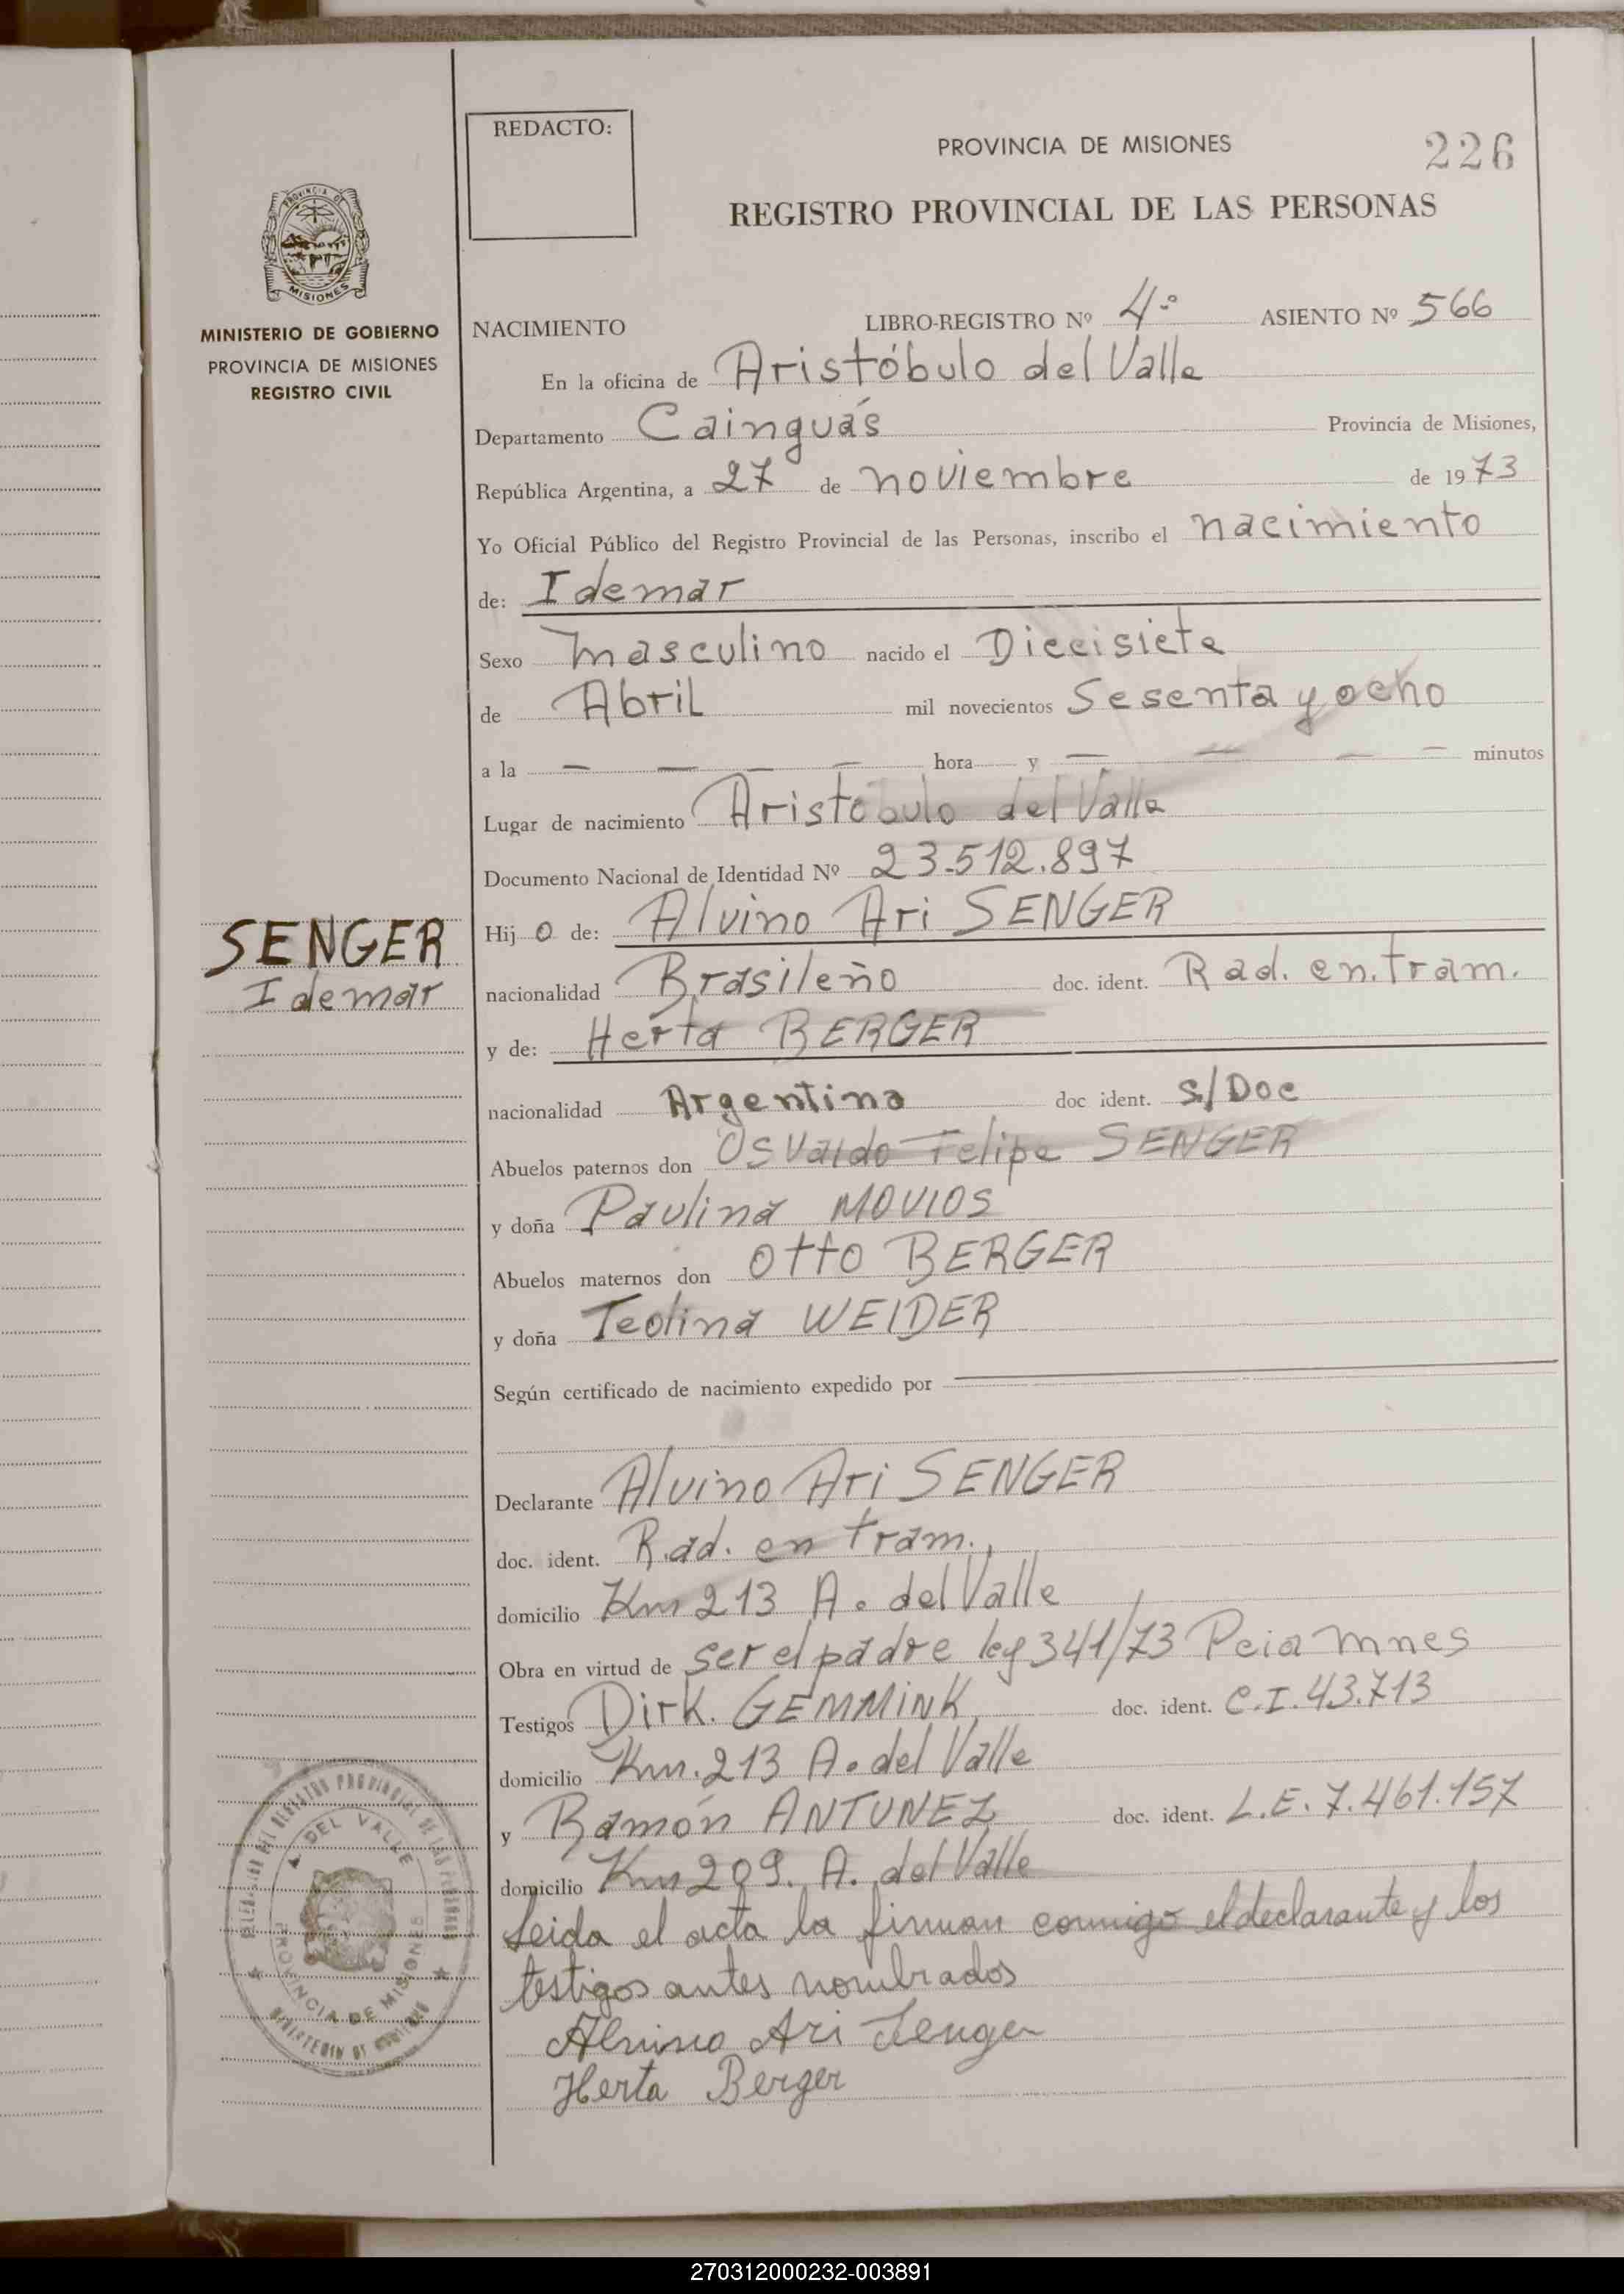 REDACTO:
PROVINCIA DE MISIONES
226
REGISTRO PROVINCIAL DE LAS PERSONAS
MISIONES
MINISTERIO DE GOBIERNO
PROVINCIA DE MISIONES
REGISTRO CIVIL
NACIMIENTO LIBRO-REGISTRO Nº 4º ASIENTO Nº 566
En la oficina de Aristóbulo del Valle
Departamento Cainguás Provincia de Misiones,
República Argentina, a 27 de noviembre de 1973
Yo Oficial Público del Registro Provincial de las Personas, inscribo el nacimiento
de: Idemar
Sexo masculino nacido el Diecisiete
de Abril mil novecientos Sesenta y ocho
a la — — — — hora y — — — — minutos
Lugar de nacimiento Aristóbulo del Valle
Documento Nacional de Identidad Nº 23.512.897
SENGER
Idemar
Hij o de: Alvino Ari SENGER
nacionalidad Brasileño doc. ident. Rad. en.tram.
y de: Herta BERGER
nacionalidad Argentina doc ident. S/Doc
Abuelos paternos don Osvaldo Felipe SENGER
y doña Paulina MOVIOS
Abuelos maternos don Otto BERGER
y doña Teolina WEIDER
Según certificado de nacimiento expedido por
Declarante Alvino Ari SENGER
doc. ident. Rad. en tram.,
domicilio Km 213 A. del Valle
Obra en virtud de ser el padre ley 341/73 Pcia Mnes
Testigos Dirk. GEMMINK doc. ident. C.I.43.713
domicilio Km.213 A. del Valle
y Ramón ANTUNEZ doc. ident. L.E. 7.461.157
domicilio Km 209. A. del Valle
Leida el acta la firman conmigo el declarante y los
testigos antes nombrados
Alvino Ari Senger
Herta Berger
DEL REGISTRO PROVINCIAL DE LAS PERSONAS
A. DEL VALLE
PROVINCIA DE MISIONES
MINISTERIO DE GOBIERNO
270312000232-003891